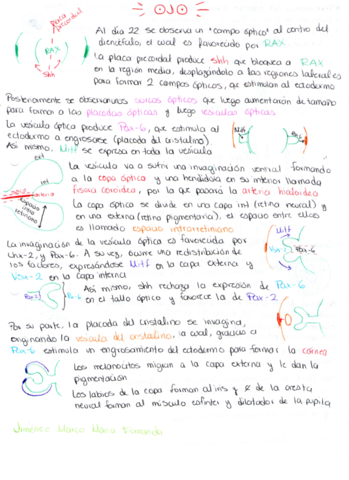 OJO
placa precordal
RAX
Shh
Al día 22 se observa un "campo óptico" al centro del
diencéfalo, el cual es favorecido por RAX.
La placa precordal produce shh que bloquea a RAX
en la región media, desplazándolo a las regiones laterales
para formar 2 campos ópticos, que estimulan al ectodermo
Posteriormente se observaran surcos ópticos que luego aumentarán de tamaño
para formar a las placodas ópticas y luego vesículas ópticas
La vesícula óptica produce Pax-6, que estimula al
ectodermo a engrosarse (placoda del cristalino)
Así mismo, Mitf se expresa en toda la vesícula
Mitf
Pax-6
ext
int
Espacio intra retiniano
La vesícula va a sufrir una imaginación ventral formando
a la copa óptica y una hendidura en su interior llamada
fisura coroidea, por la que pasará la arteria hialoidea
La copa óptica se divide en una capa int (retina neural) y
en una externa (retina pigmentaria), el espacio entre ellas
es llamado espacio intrarretiniano
La imaginación de la vesícula óptica es favorecida por
Lhx-2, y Pax-6. A su vez, ocurre una redistribución de
los factores, expresándose Mitf en la capa externa y
Vsx-2 en la capa interna
Mitf
Pax-6
Así mismo, shh rechaza la expresión de Pax-6
en el tallo óptico y favorece la de Pax-2
Por su parte, la placoda del cristalino se imagina,
originando la vesícula del cristalino, la cual, gracias a
Pax-6 estimula un engrosamiento del ectodermo para formar la córnea
Los melanocitos migran a la capa externa y le dan la
pigmentación
Los labios de la copa forman al iris y de la cresta
neural forman al músculo esfínter y dilatador de la pupila
Jiménez Marco María Fernanda